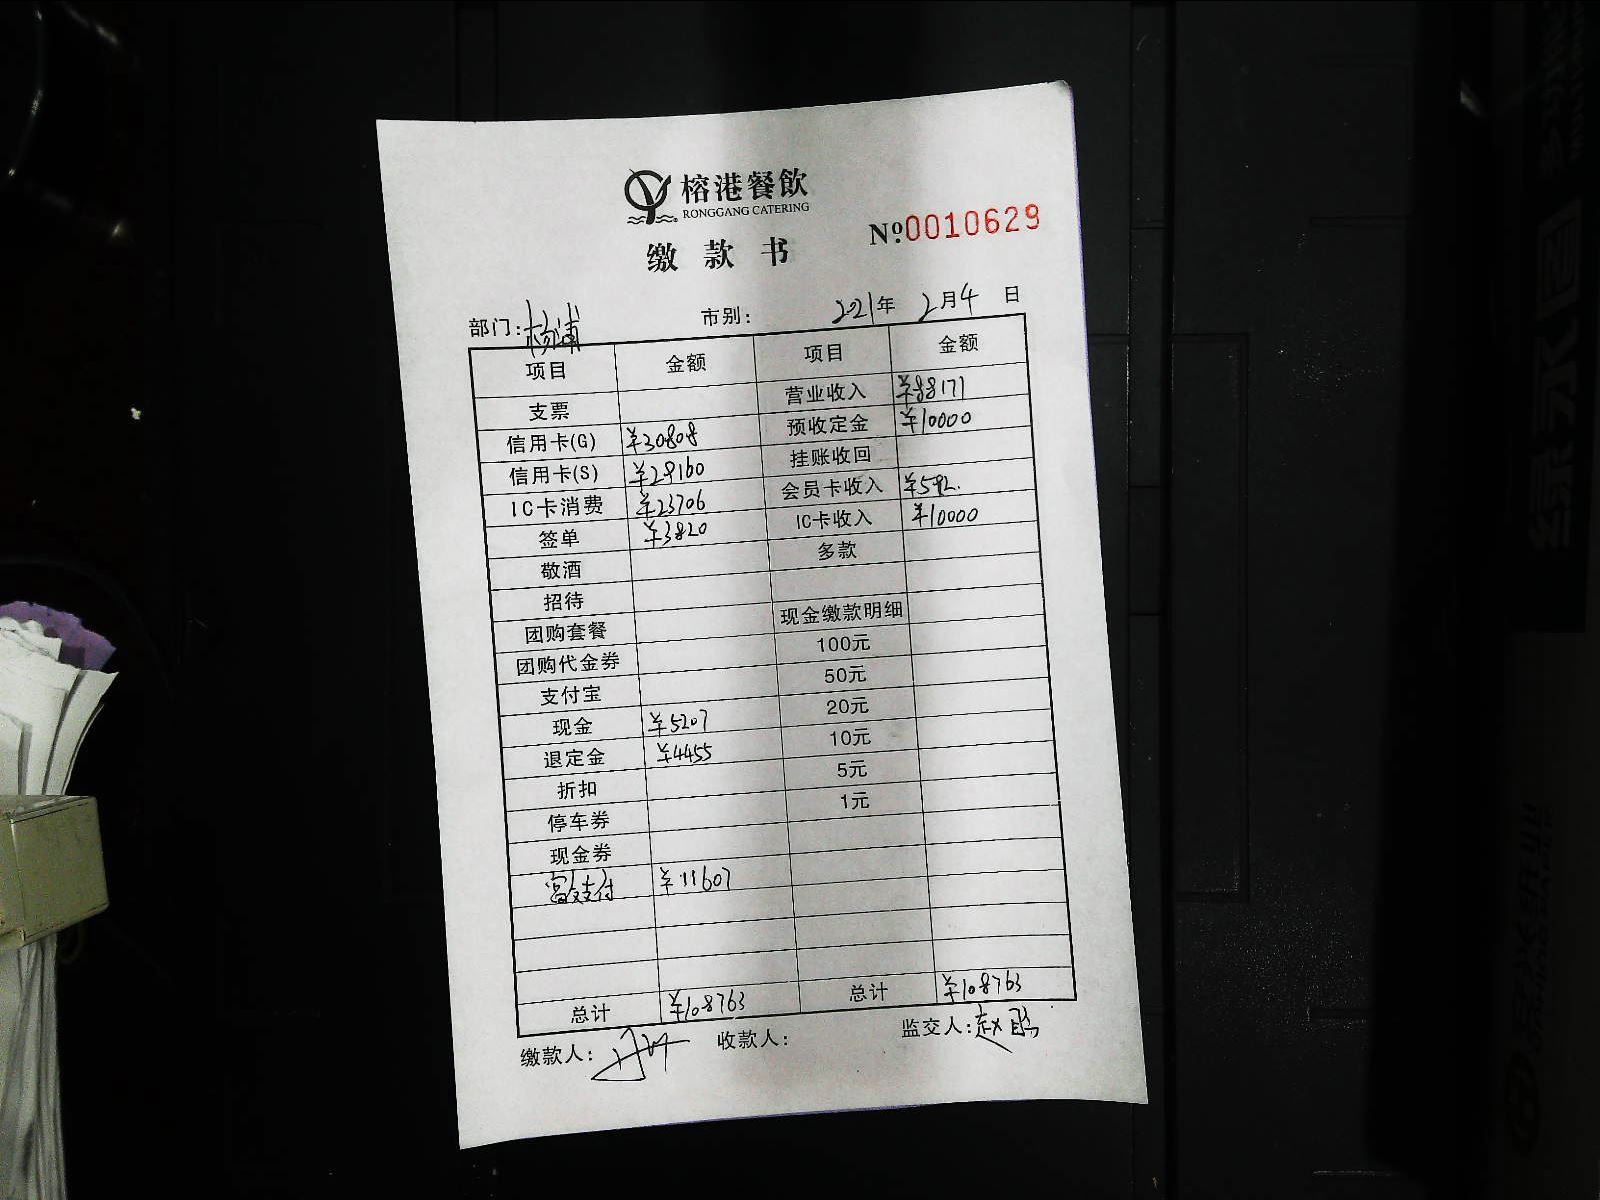 榕港餐飲
RONGGANG CATERING
缴款书
Nº 0010629
部门: 杨浦 市别: 2021年 2月4日
项目 金额 项目 金额
支票 营业收入 ¥88171
信用卡(G) ¥30808 预收定金 ¥10000
信用卡(S) ¥29160 挂账收回
IC卡消费 ¥23706 会员卡收入 ¥592.
签单 ¥3820 IC卡收入 ¥10000
敬酒 多款
招待
团购套餐 现金缴款明细
团购代金券 100元
支付宝 50元
现金 ¥5207 20元
退定金 ¥4455 10元
折扣 5元
停车券 1元
现金券
富友支付 ¥11607
总计 ¥108763 总计 ¥108763
缴款人: 收款人: 监交人: 赵